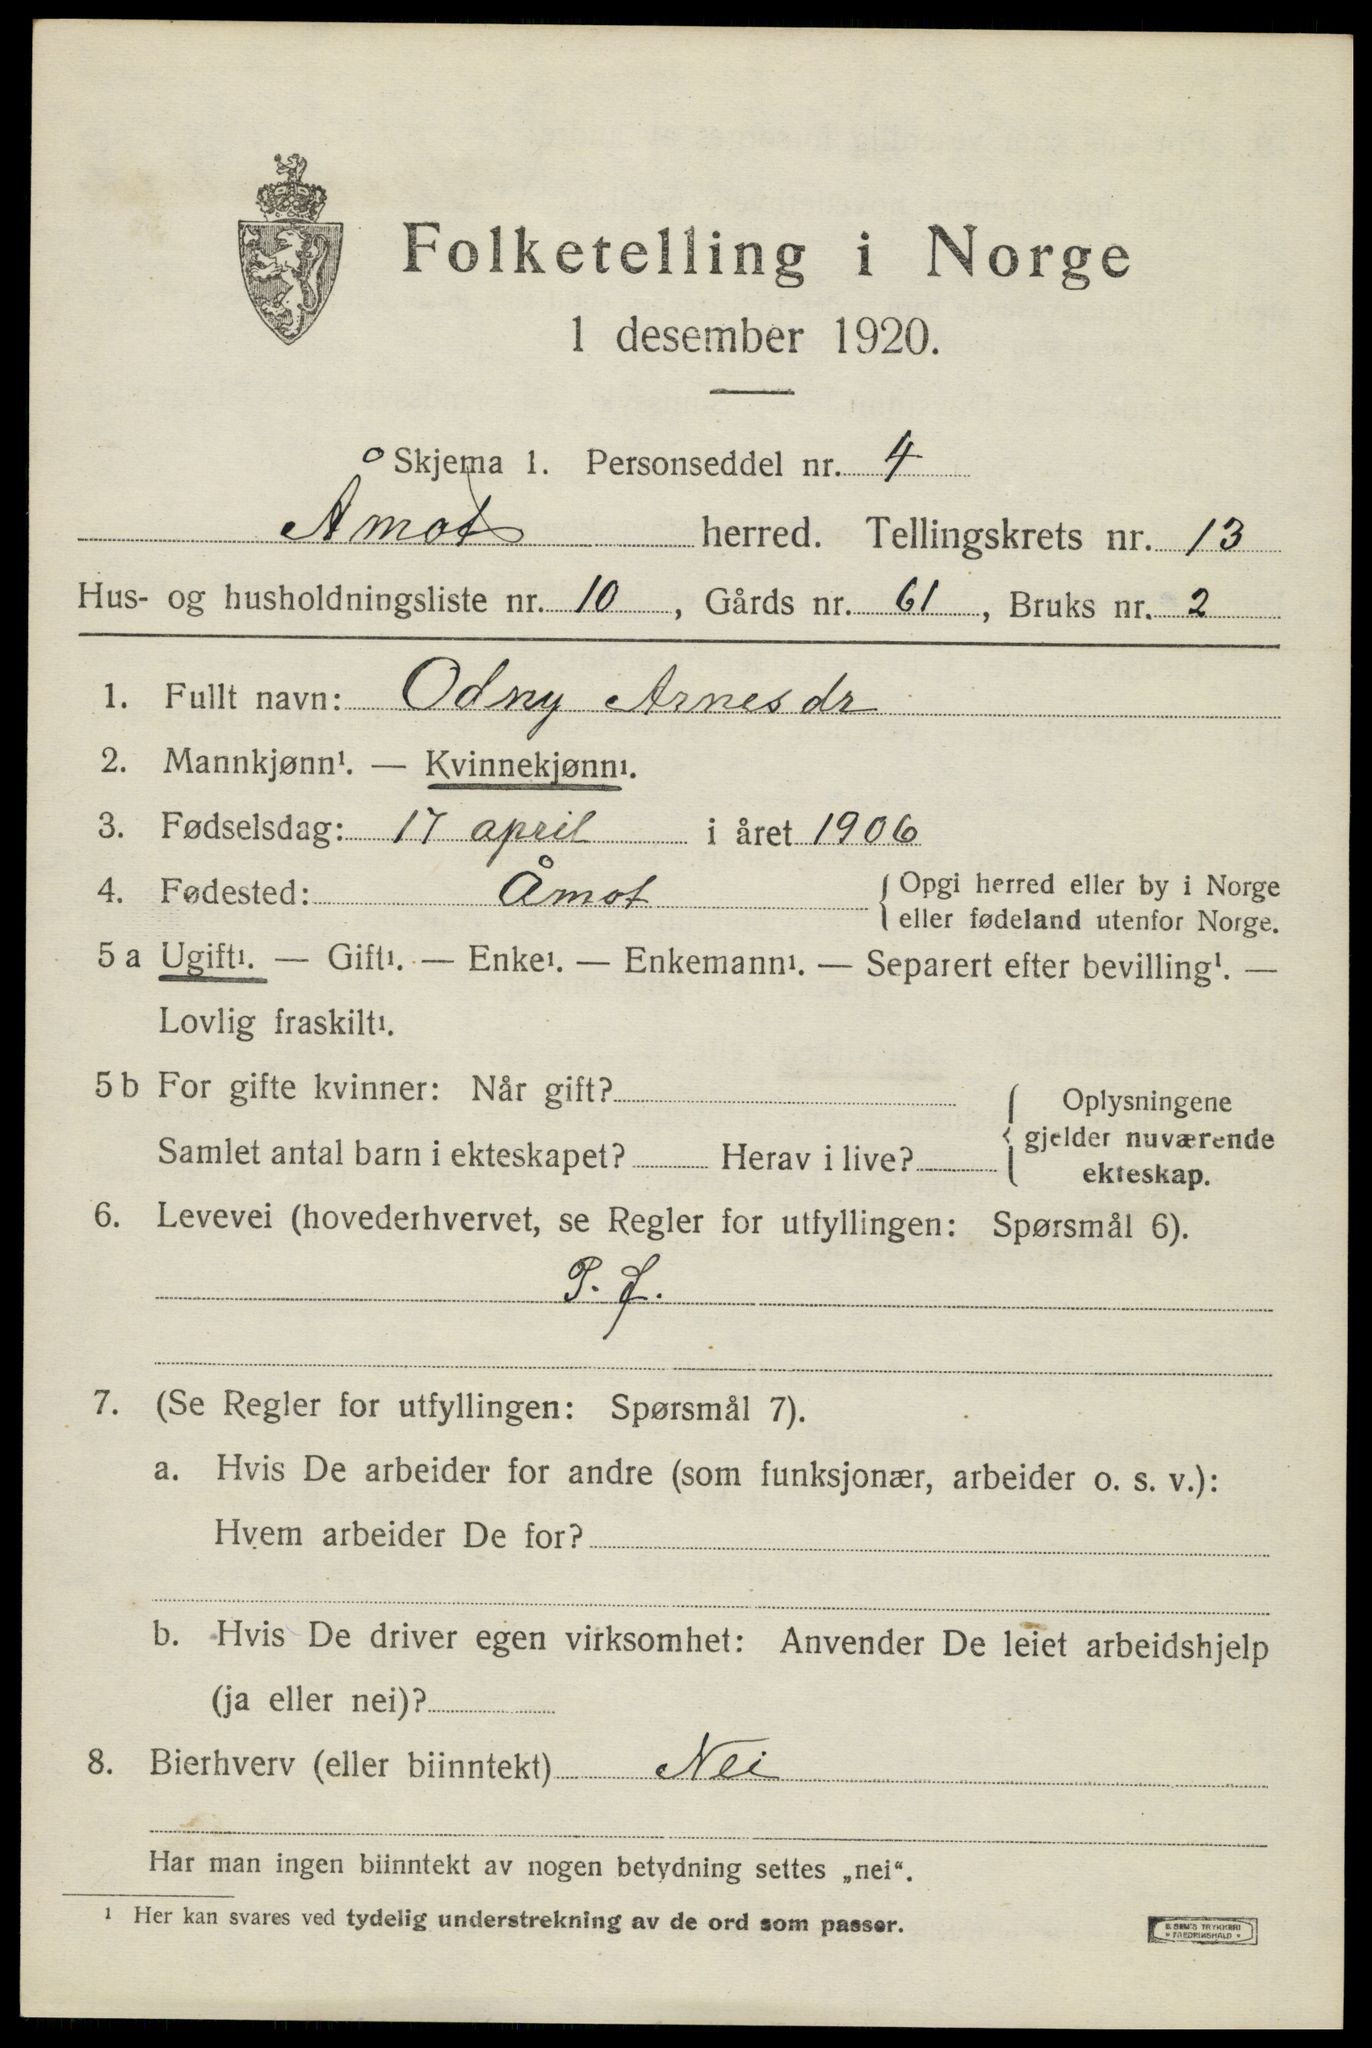 Folketelling i Norge
1 desember 1920.
Skjema 1. Personseddel nr. 4
Åmot herred. Tellingskrets nr. 13
Hus- og husholdningsliste nr. 10, Gårds nr. 61, Bruks nr. 2
1. Fullt navn: Odny Arnesdr
2. Mannkjønn¹. — Kvinnekjønn¹.
3. Fødselsdag: 17 april i året 1906
4. Fødested: Åmot { Opgi herred eller by i Norge
eller fødeland utenfor Norge.
5 a Ugift¹. — Gift¹. — Enke¹. — Enkemann¹. — Separert efter bevilling¹. —
Lovlig fraskilt¹.
5 b For gifte kvinner: Når gift?
Samlet antal barn i ekteskapet? Herav i live?
{ Oplysningene
gjelder nuværende
ekteskap.
6. Levevei (hovederhvervet, se Regler for utfyllingen: Spørsmål 6).
P. f.
7. (Se Regler for utfyllingen: Spørsmål 7).
a. Hvis De arbeider for andre (som funksjonær, arbeider o. s. v.):
Hvem arbeider De for?
b. Hvis De driver egen virksomhet: Anvender De leiet arbeidshjelp
(ja eller nei)?
8. Bierhverv (eller biinntekt) Nei
Har man ingen biinntekt av nogen betydning settes „nei“.
¹ Her kan svares ved tydelig understrekning av de ord som passer.
E. SEM'S TRYKKERI
* FREDRIKSHALD *